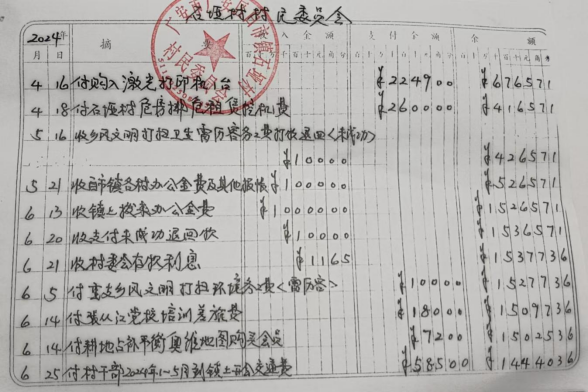 石垭村村民委员会
2024年 摘 要 收入金额 支付金额 余 额
月 日
4 16 付购入激光打印机1台 ¥224900 ¥676571
4 18 付石垭村危房排危租赁挖机费 ¥260000 ¥416571
5 16 收乡风文明打扫卫生雷历容务工费打收退回(未成功)
¥10000 ¥426571
5 21 收白市镇各村办公金费及其他报帐 ¥100000 ¥526571
6 13 收镇上拨来办公金费 ¥1000000 ¥1526571
6 20 收支付未成功退回收 ¥10000 ¥1536571
6 21 收村委会存款利息 ¥1165 ¥1537736
6 5 付重支乡风文明打扫环境务工费<雷历容> ¥10000 ¥1527736
6 14 付 从江党校培训差旅费 ¥18000 ¥1509736
6 14 付耕地占补平衡奥维地图购买会员 ¥7200 ¥1502536
6 25 付村干部2024年1~5月到镇上开会交通费 ¥58500 ¥1444036